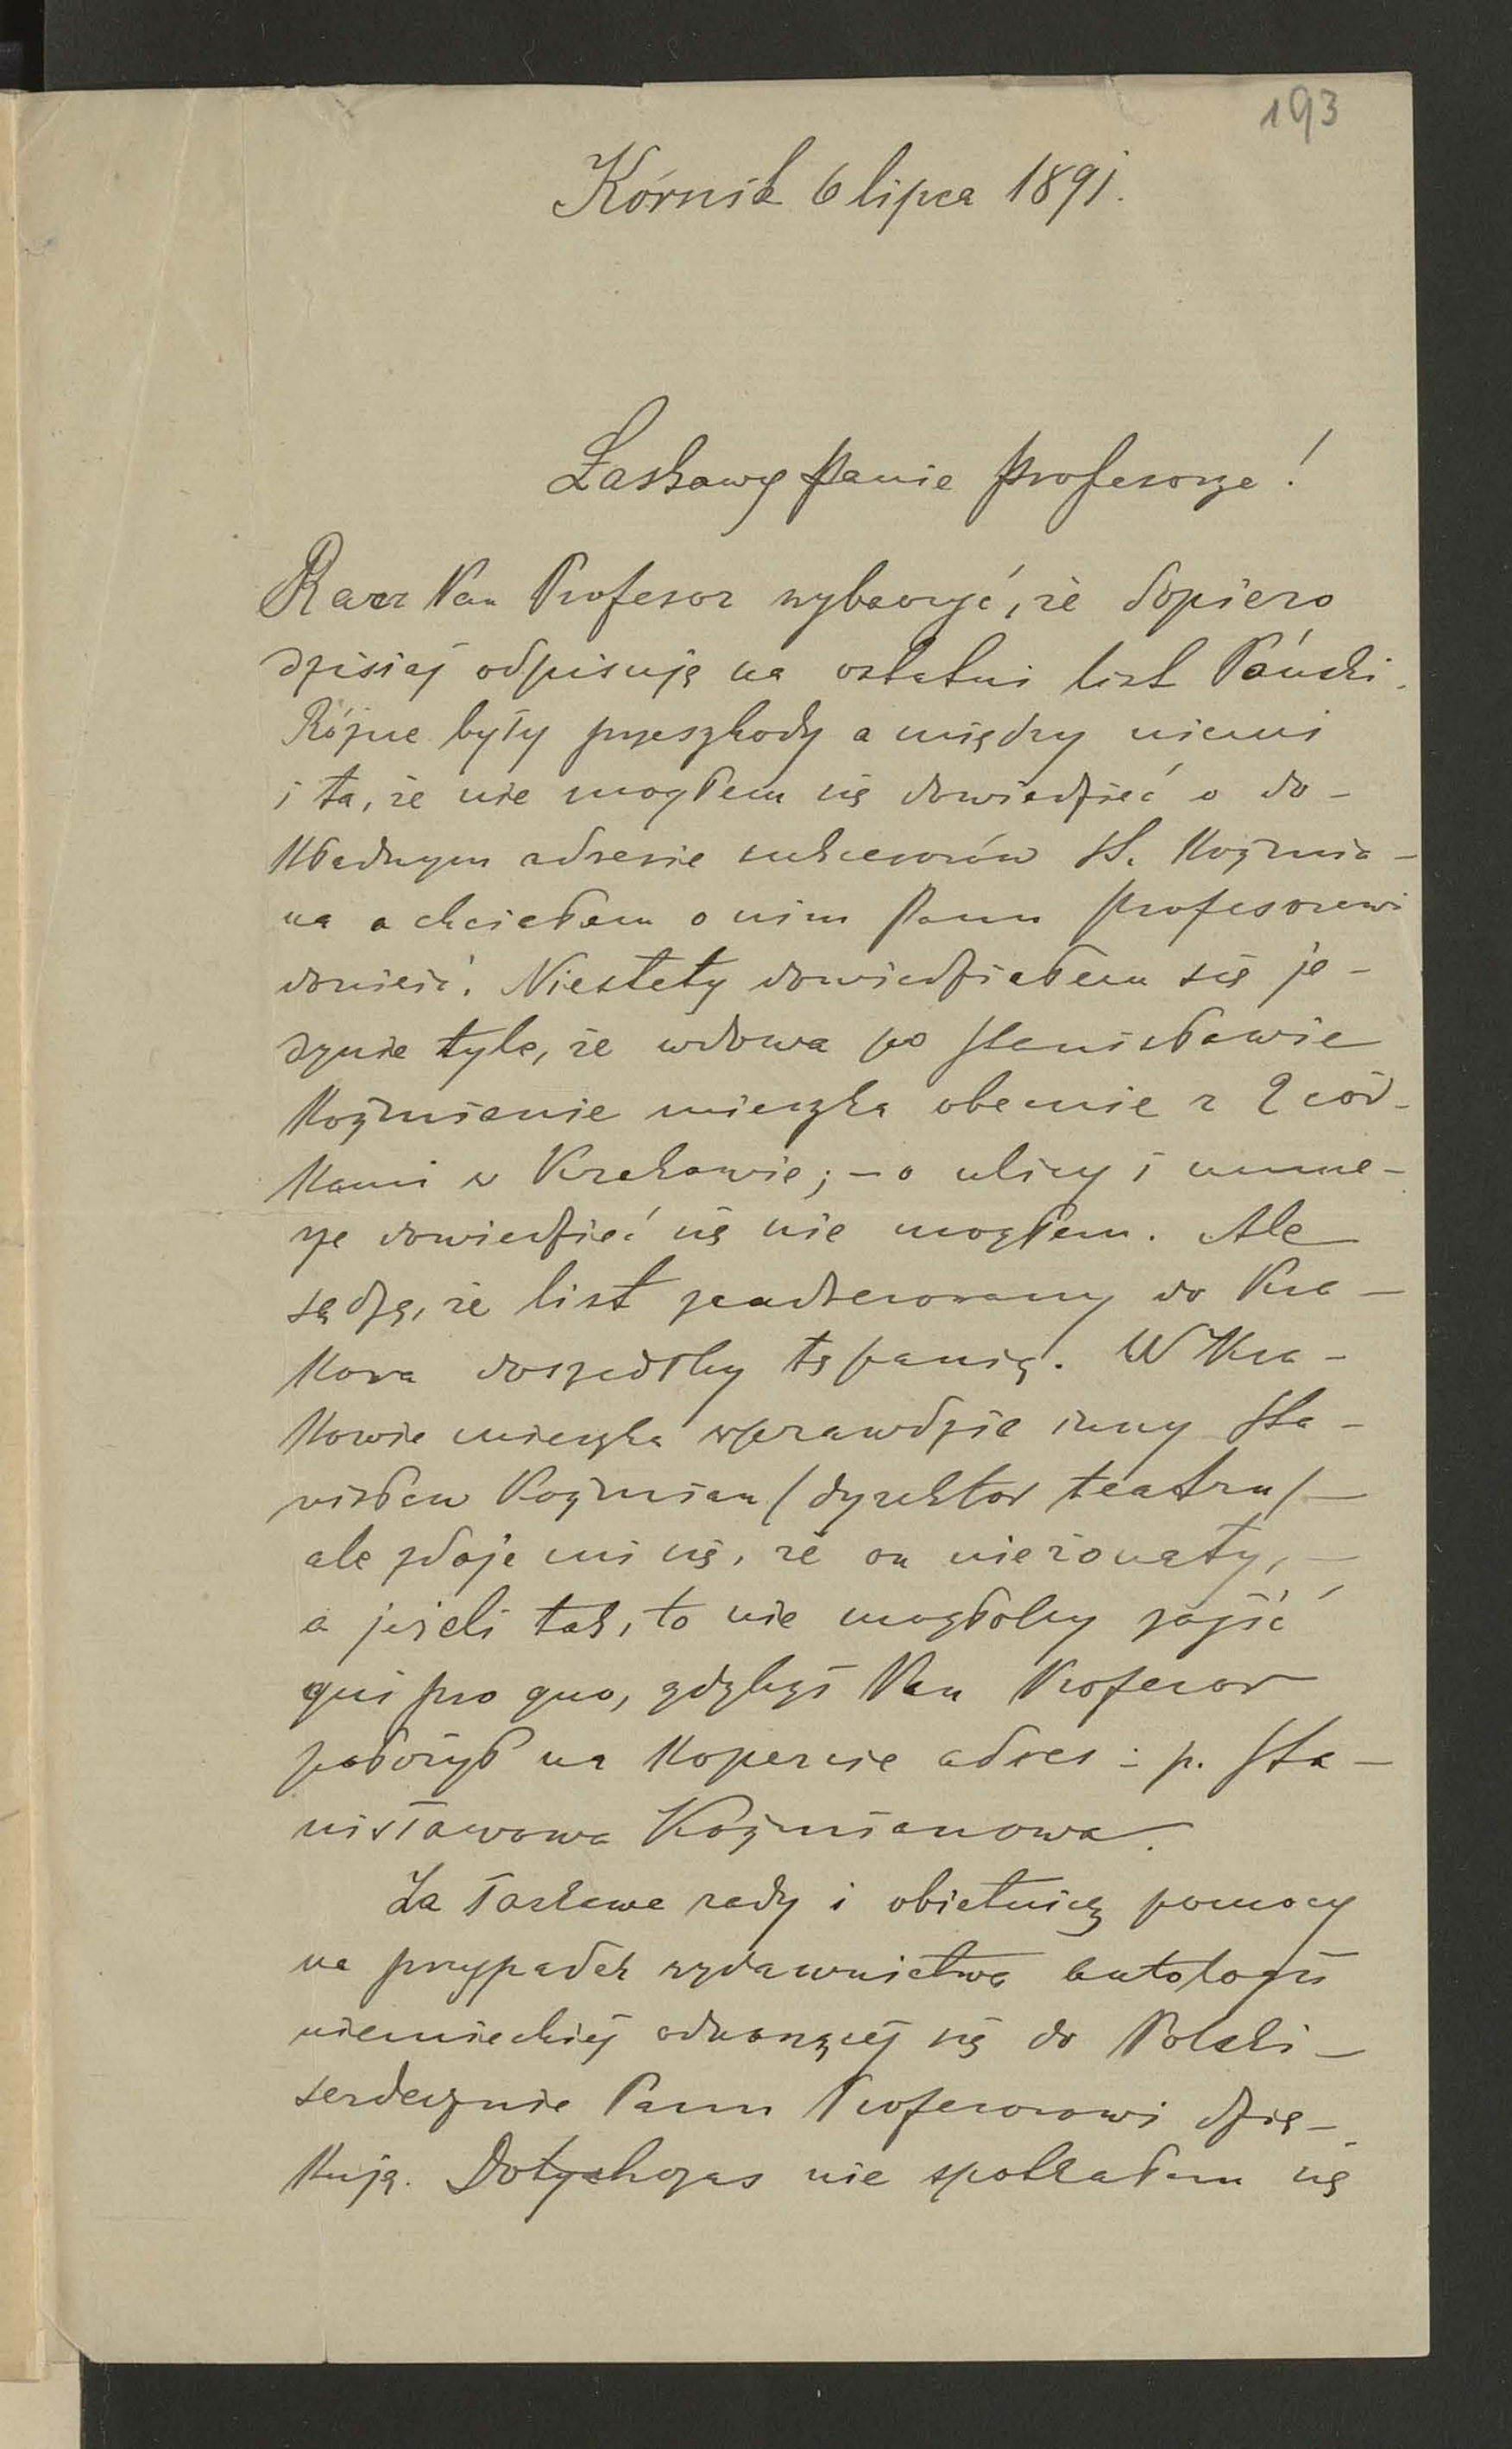 193
Kórnik 6 lipca 1891.
Łaskawy Panie Profesorze!
Racz Pan Profesor wybaczyć, że dopiero
dzisiaj odpisuję na ostatni list Pański.
Różne były przeszkody a między niemi
i ta, że nie mogłem się dowiedzieć o do-
kładnym adresie sukcesorów St. Koźmia-
na a chciałem o nim Panu Profesorowi
donieść. Niestety dowiedziałem się je-
dynie tyle, że wdowa po Stanisławie
Koźmianie mieszka obecnie z 2 cór-
kami w Krakowie; – o ulicy i nume-
rze dowiedzieć się nie mogłem. Ale
sądzę, że list zaadresowany do Kra-
kowa doszedłby tę panią. W Kra-
kowie mieszka wprawdzie inny Sta-
nisław Koźmian / dyrektor teatru / –
ale zdaje mi się, że on nieżonaty, –
a jeżeli tak, to nie mogłoby zajść
qui pro quo, gdybyś Pan Profesor
położył na kopercie adres: p. Sta-
nisławowa Koźmianowa.
Za łaskawe rady i obietnicę pomocy
na przypadek wydawnictwa antologii
niemieckiej odnoszącej się do Polski –
serdecznie Panu Profesorowi dzię-
kuję. Dotychczas nie spotkałem się